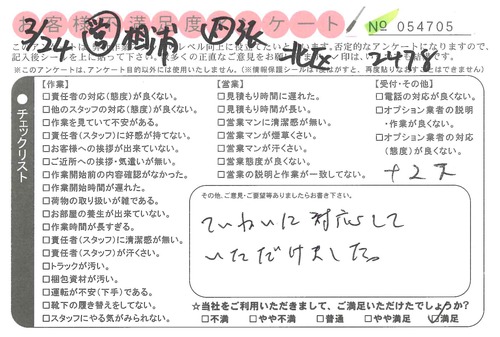 お客様不満足度アンケート
№ 054705
3/24 営 相浦 作 張 北区 2478
記入後シールを上に貼って下さい。
※このアンケートは、アンケート目的以外には使用いたしません。(※情報保護シールは1度はがすと、再度貼りなおすことはできません)
チェックリスト
【作業】
□責任者の対応(態度)が良くない。
□他のスタッフの対応(態度)が良くない。
□作業を見ていて不安がある。
□責任者(スタッフ)に好感が持てない。
□お客様への挨拶が出来ていない。
□ご近所への挨拶・気遣いが無い。
□作業開始前の内容確認がなかった。
□作業開始時間が遅れた。
□荷物の取り扱いが雑である。
□お部屋の養生が出来ていない。
□作業時間が長すぎる。
□責任者(スタッフ)に清潔感が無い。
□責任者(スタッフ)が汗くさい。
□トラックが汚い。
□梱包資材が汚い。
□運転が不安(下手)である。
□靴下の履き替えをしてない。
□スタッフにやる気がみられない。
【営業】
□見積もり時間に遅れた。
□見積もり時間が長い。
□営業マンに清潔感が無い。
□営業マンが煙草くさい。
□営業マンが汗くさい。
□営業態度が良くない。
□営業の説明と作業が一致してない。
【受付・その他】
□電話の対応が良くない。
□オプション業者の説明
・作業が良くない。
□オプション業者の対応
(態度)が良くない。
その他、ご意見・ご要望等ありましたらお書き下さい。
ていねいに対応して
いただけました。
☆当社をご利用いただきまして、ご満足いただけたでしょうか?
□不満 □やや不満 □普通 □やや満足 ☑満足